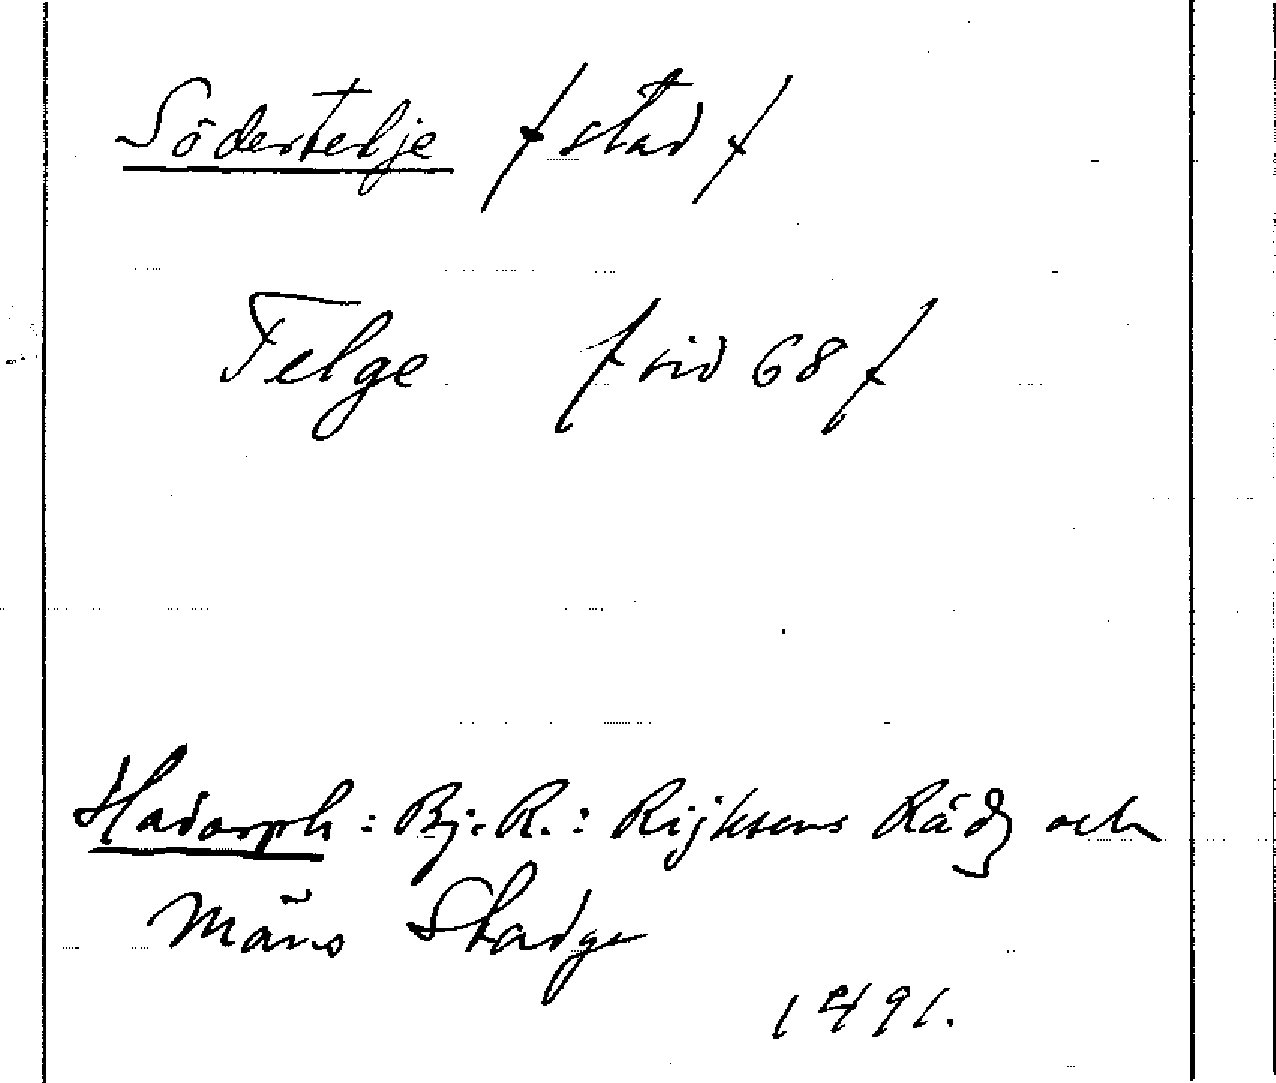 Södertelje /stad/
Telge /sid 68/
Hadorph: Bj. R.: Rijksens Rådz och
Mäns Stadge
1491.